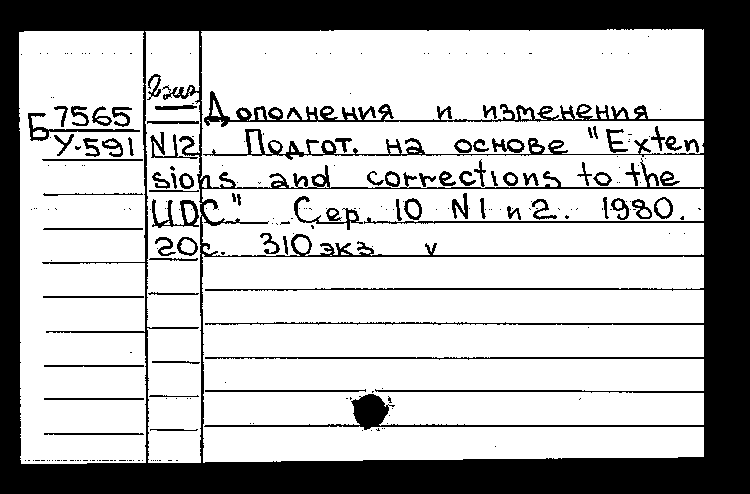 Б 7565
У-591
Дополнения и изменения
N12. Подгот. на основе "Exten-
sions and corrections to the
UDC". Сер. 10 N1 и 2. 1980.
20с. 310 экз. v